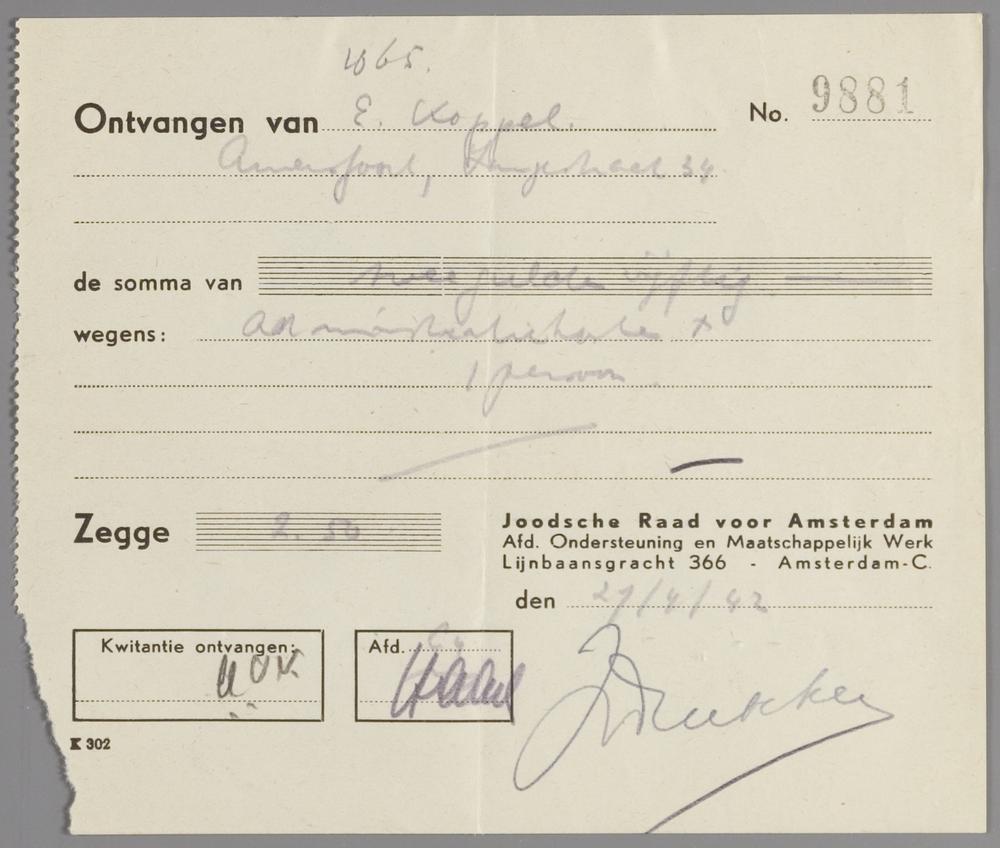 1065.
Ontvangen van E. Koppel. No. 9881
Amersfoort, Langestraat 34
de somma van twee gulden vijftig
wegens: Administratiekosten
1 persoon.
Zegge 2.50
Joodsche Raad voor Amsterdam
Afd. Ondersteuning en Maatschappelijk Werk
Lijnbaansgracht 366 - Amsterdam-C.
den 27/4/42
Kwitantie ontvangen:
Afd.
K 302